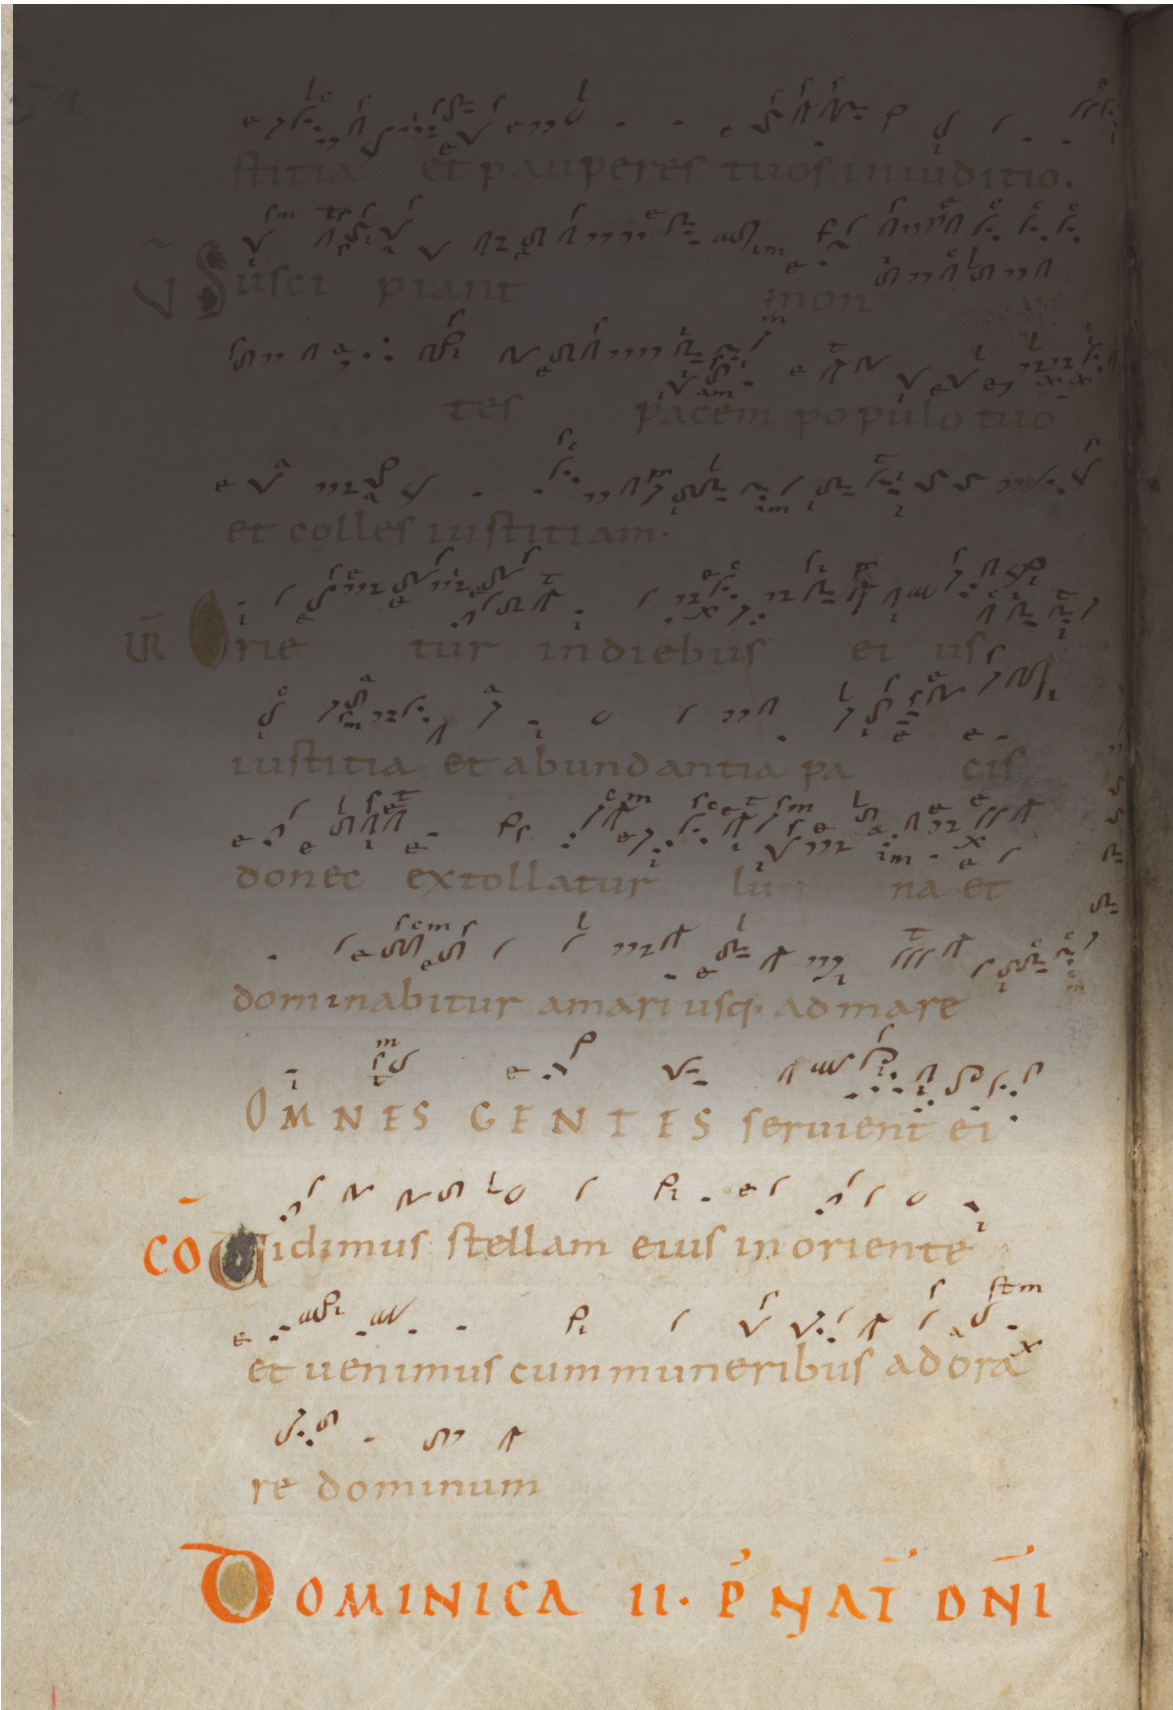 stitia et pauperes tuos in iuditio.
V Suscipiant mon
tes pacem populo tuo
et colles iustitiam.
R Orietur in diebus eius
iustitia et abundantia pacis
donec extollatur luna et
dominabitur a mari usq. ad mare
OMNES GENTES seruient ei
CŌ Uidimus stellam eius in oriente
et uenimus cum muneribus adora
re dominum
DOMINICA II. P̄ NAT̄ DN̄I